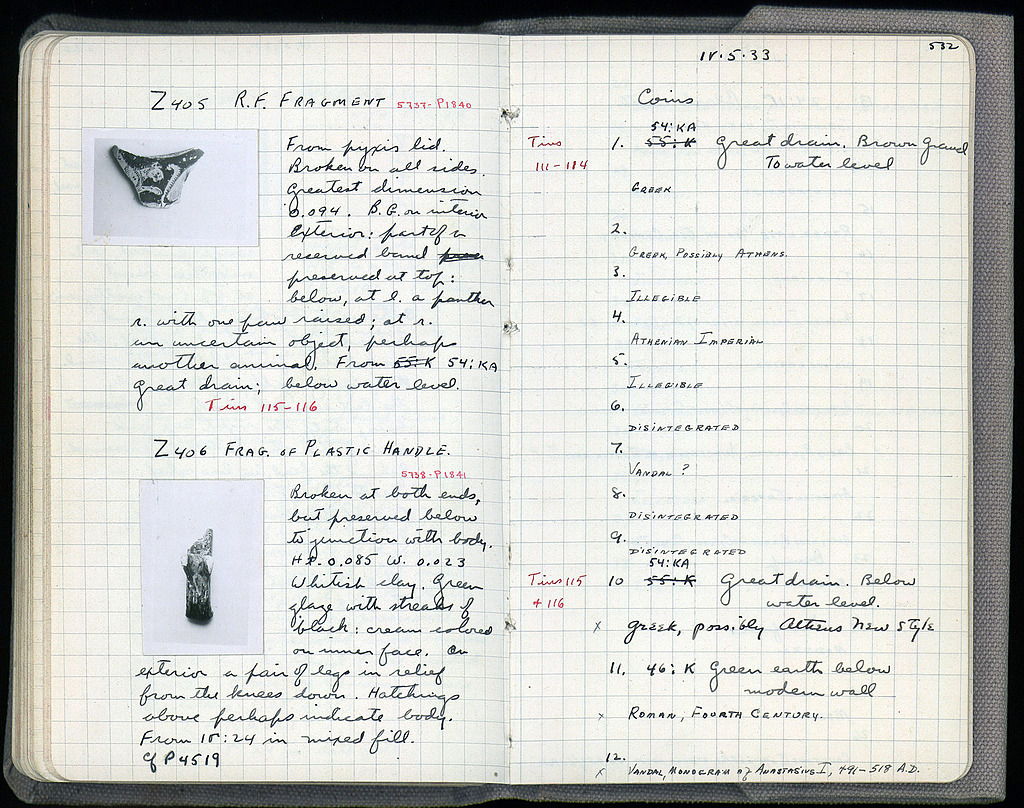 Z405 R.F. FRAGMENT 5737-P1840
From pyxis lid.
Broken on all sides.
Greatest dimension
0.094. B.G. on interior
Exterior: part of a
reserved band
preserved at top:
below, at l. a panther
r. with one paw raised; at r.
an uncertain object, perhaps
another animal. From 55:K 54:KA
great drain; below water level.
Tins 115-116
Z406 FRAG. OF PLASTIC HANDLE.
5738-P1841
Broken at both ends,
but preserved below
to junction with body.
Ht. 0.085 W. 0.023
Whitish clay. Green
glaze with streaks of
black: cream colored
on inner face. On
exterior a pair of legs in relief
from the knees down. Hatchings
above perhaps indicate body.
From 15:24 in mixed fill.
Cf P4519
532
15.5.33
Coins
54:KA
Tins 1. 55:K Great drain. Brown gravel
111-114 To water level
GREEK
2.
GREEK, POSSIBLY ATHENS.
3.
ILLEGIBLE
4.
ATHENIAN IMPERIAL
5.
ILLEGIBLE
6.
DISINTEGRATED
7.
VANDAL?
8.
DISINTEGRATED
9.
DISINTEGRATED
54:KA
Tins 115 10 55:K Great drain. Below
+ 116 water level.
x Greek, possibly Athens New Style
11. 46:K Green earth below
modern wall
x ROMAN, FOURTH CENTURY.
12.
x VANDAL, MONOGRAM of ANASTASIUS I, 491-518 A.D.